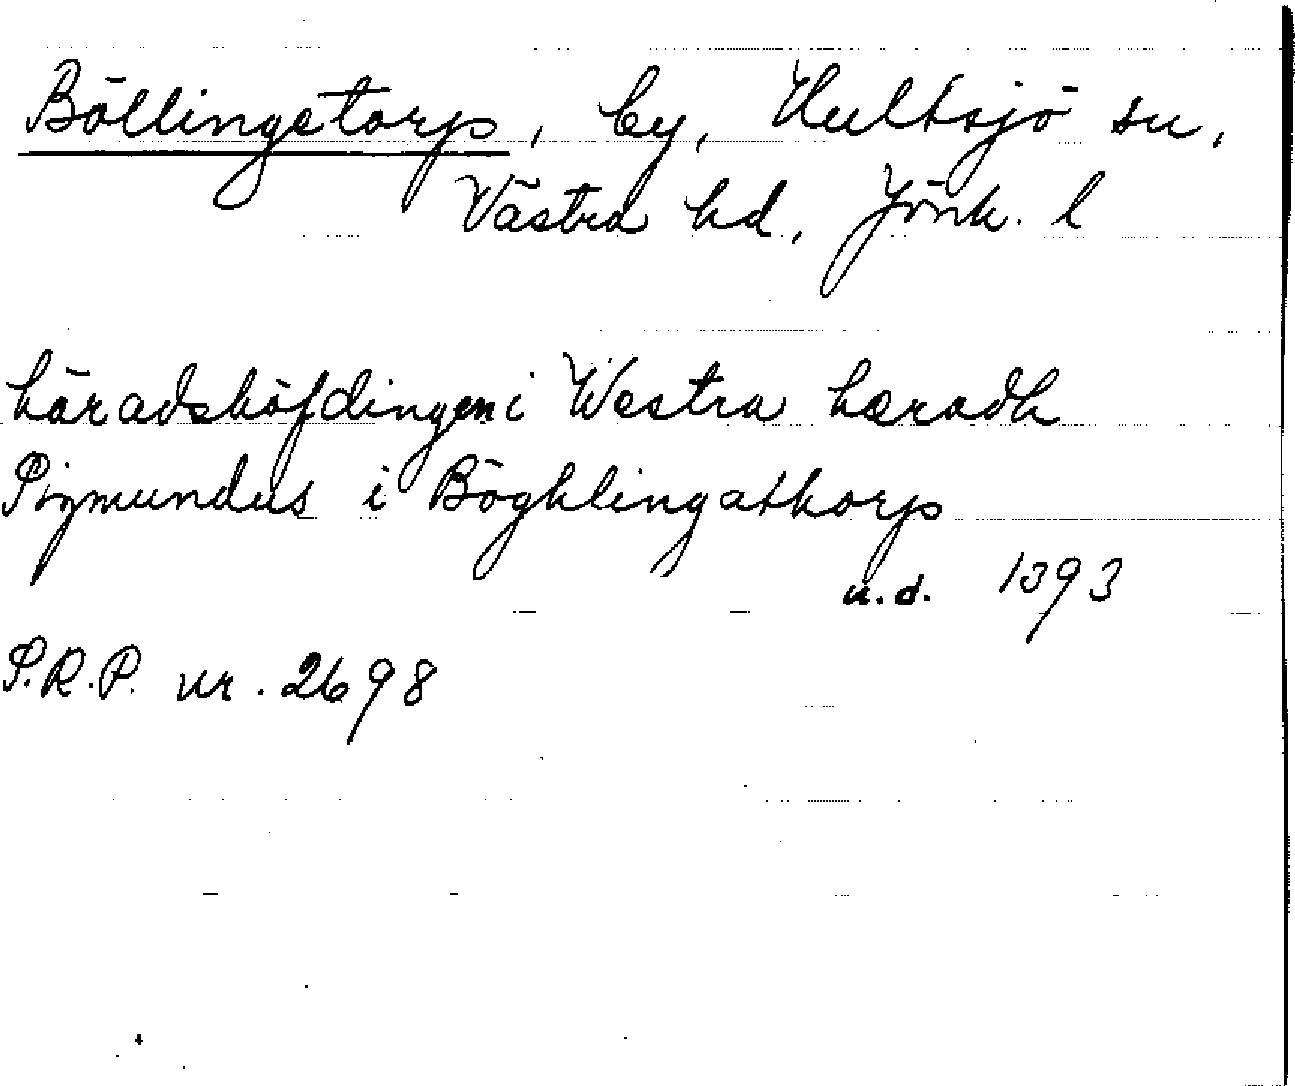 Böllingetorp, by, Hultsjö sn,
Västra hd, Jönk. l
häradshöfdingen i Westra hæradh
Sigmundus i Böghlingathorp
u.d. 1393
S.R.P. nr. 2698